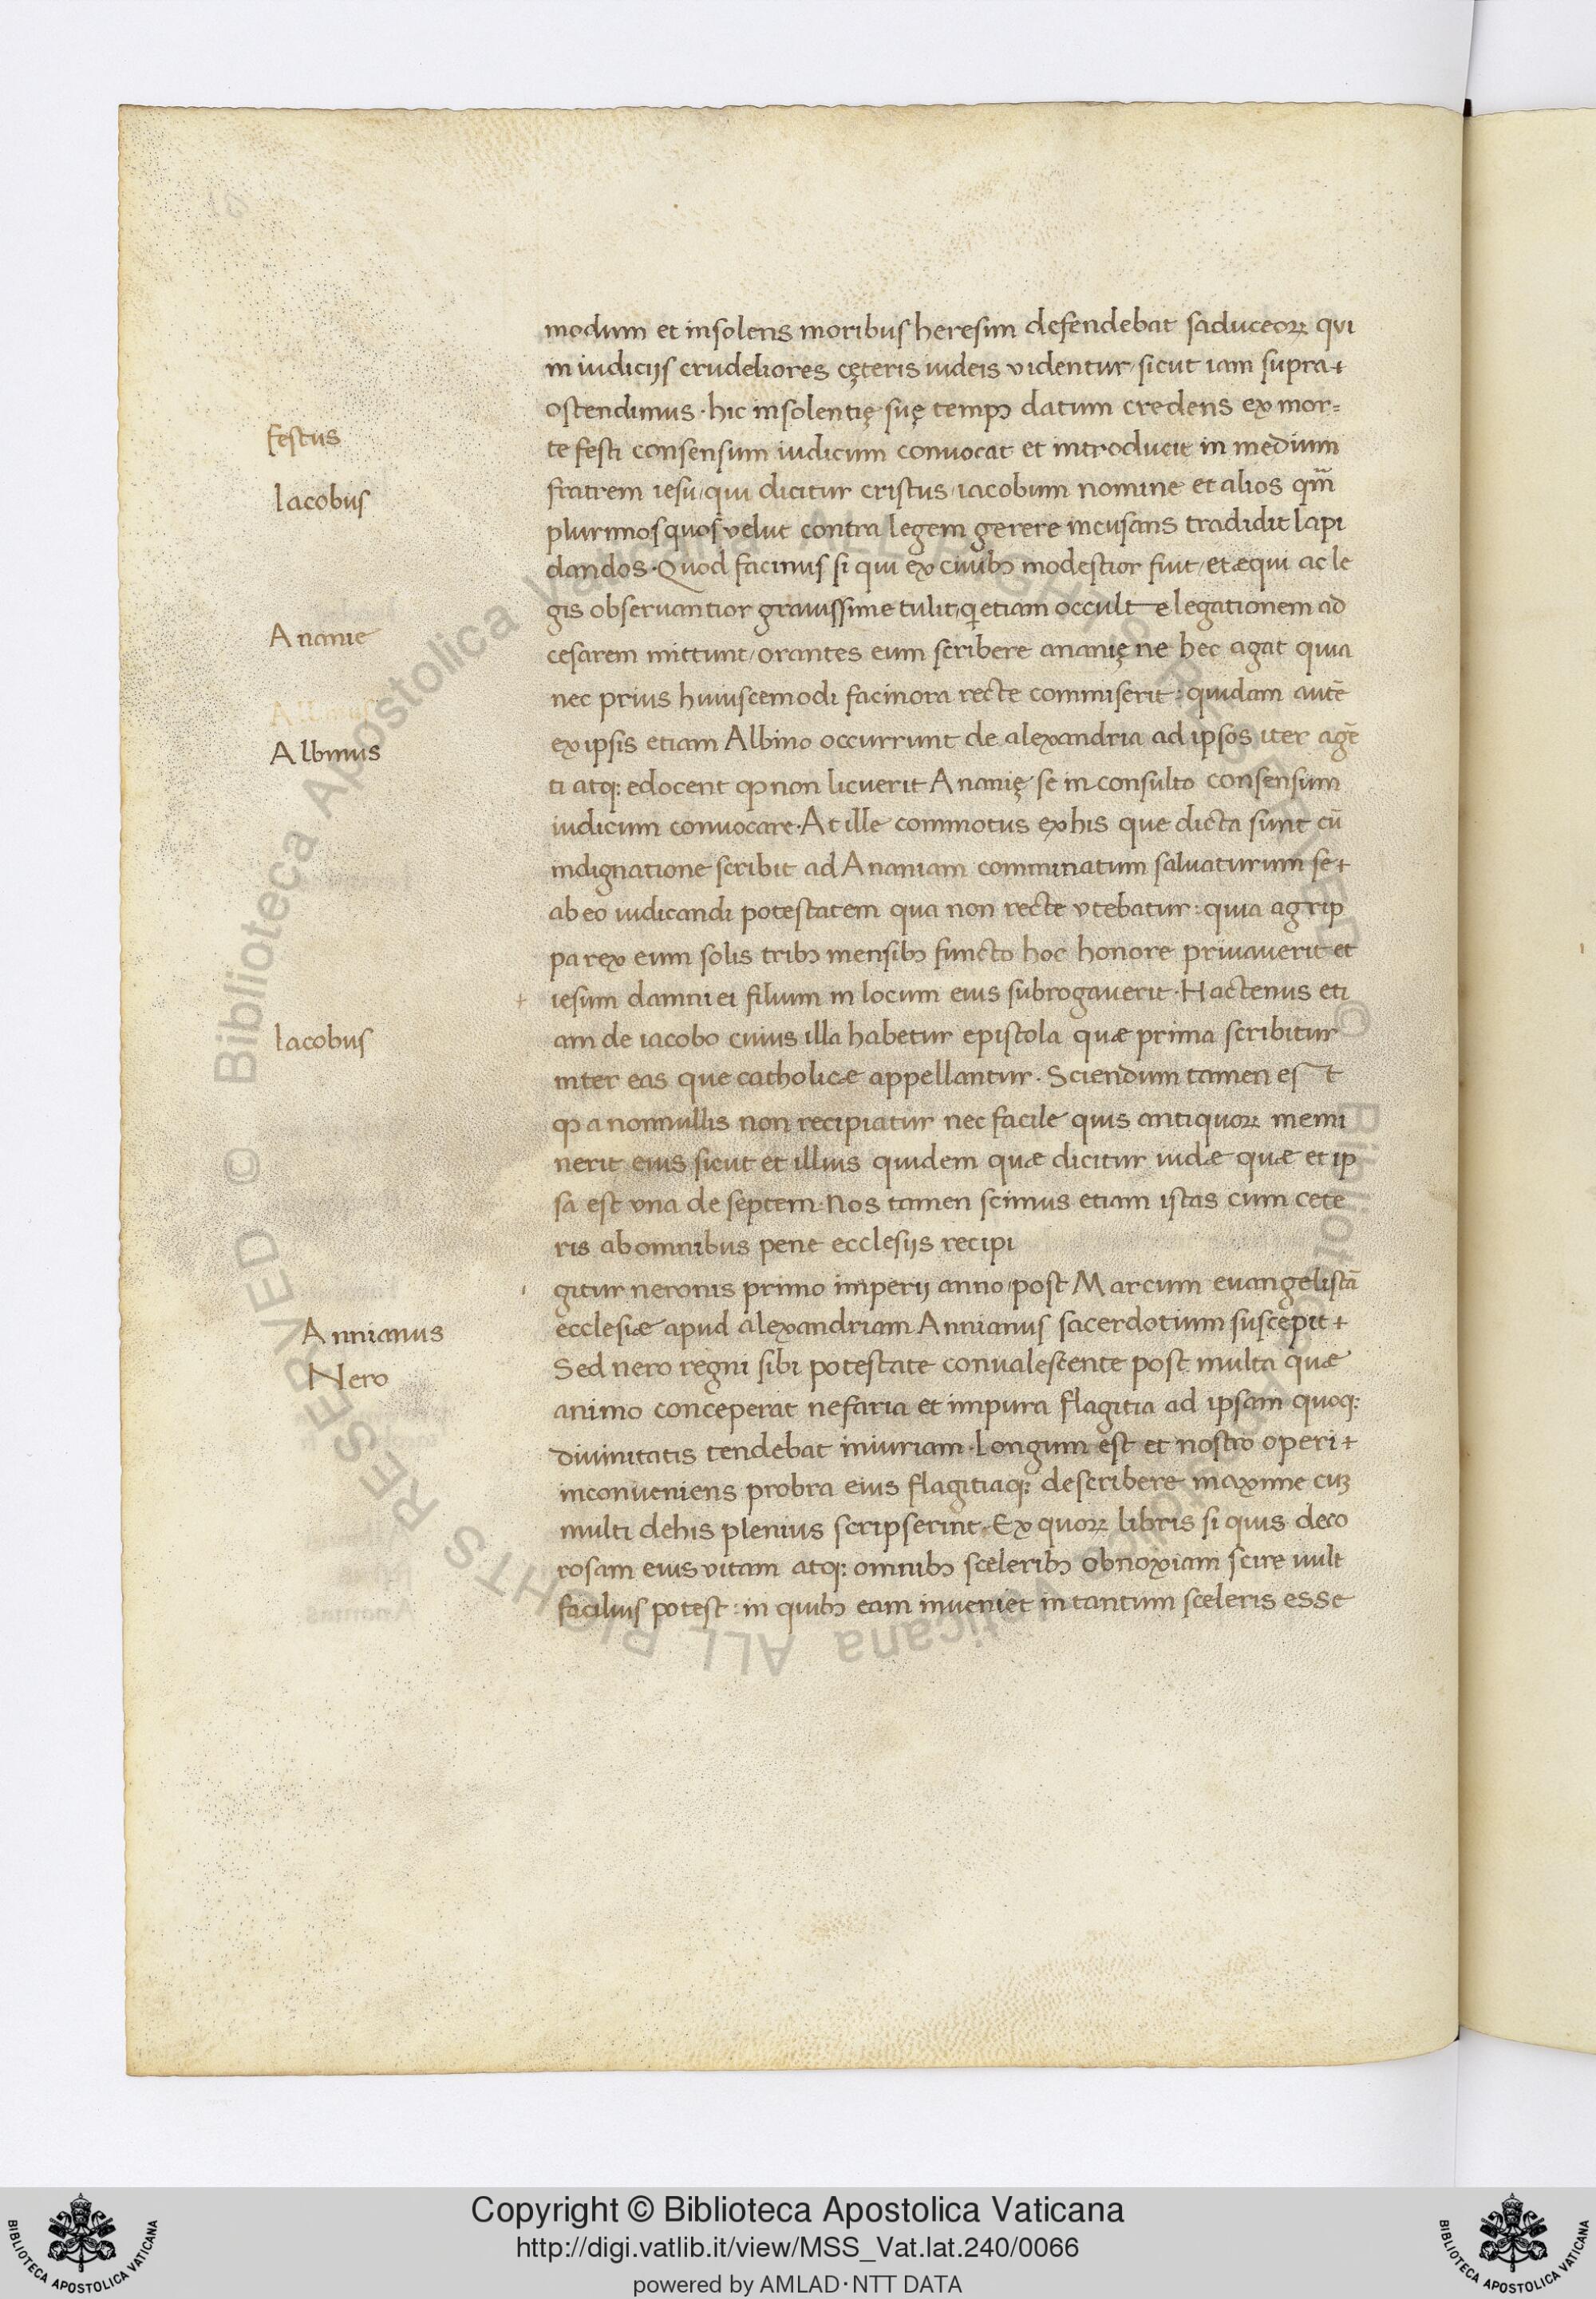 modum et insolens moribus heresim defendebat saduceoꝝ qui
in iudicijs crudeliores cęteris iudeis videntur / sicut iam supra+
ostendimus · hic insolentię suę tempꝰ datum credens ex mor=
Festus
te festi consensum iudicum conuocat et introducit in medium
Iacobus
fratrem iesu / qui dicitur cristus / iacobum nomine et alios qm̅
plurimos quos velut contra legem gerere incusans tradidit lapi
dandos · Quod facinus si qui ex ciuibꝰ modestior fuit / et æqui ac le
gis obseruantior grauissime tulit / q̨ etiam occulte legationem ad
Ananie
cesarem mittunt / orantes eum scribere ananię ne hec agat quia
nec prius huiuscemodi facinora recte commiserit : quidam autē
Albinus
Albinus
ex ipsis etiam Albino occurrunt de alexandria ad ipsos iter agē
ti atq: edocent ꝙ non licuerit Ananię se inconsulto consensum
iudicum conuocare · At ille commotus ex his que dicta sunt cū
indignatione scribit ad Ananiam comminatum saluaturum se+
ab eo iudicandi potestatem qua non recte vtebatur : quia agrip
pa rex eum solis tribꝰ mensibꝰ functo hoc honore priuauerit et
+ iesum damni ei filium in locum eius subrogauerit · Hactenus eti
Iacobus
am de iacobo cuius illa habetur epistola quæ prima scribitur
inter eas que catholicæ appellantur · Sciendum tamen est
ꝙ a nonnullis non recipiatur nec facile quis antiquoꝝ memi
nerit eius sicut et illius quidem quæ dicitur iudæ quæ et ip
sa est vna de septem · Nos tamen scimus etiam istas cum cete
ris ab omnibus pene ecclesijs recipi
ı gitur neronis primo imperij anno / post Marcum euangelistā
Annianus
ecclesiæ apud alexandriam Annianus sacerdotium suscepit +
Nero
Sed nero regni sibi potestate conualescente post multa quæ
animo conceperat nefaria et impura flagitia ad ipsam quoq:
diuinitatis tendebat iniuriam · Longum est et nostro operi+
inconueniens probra eius flagitiaq: describere maxime cuꝫ
multi de his plenius scripserint · Ex quoꝝ libris si quis deco
rosam eius vitam atq: omnibꝰ sceleribꝰ obnoxiam scire uult
facilius potest : in quibꝰ eam inueniet in tantum sceleris esse
© Biblioteca Apostolica Vaticana ALL RIGHTS RESERVED
© Biblioteca Apostolica Vaticana ALL RIGHTS RESERVED
Copyright © Biblioteca Apostolica Vaticana
http://digi.vatlib.it/view/MSS_Vat.lat.240/0066
powered by AMLAD·NTT DATA
BIBLIOTECA APOSTOLICA VATICANA
BIBLIOTECA APOSTOLICA VATICANA